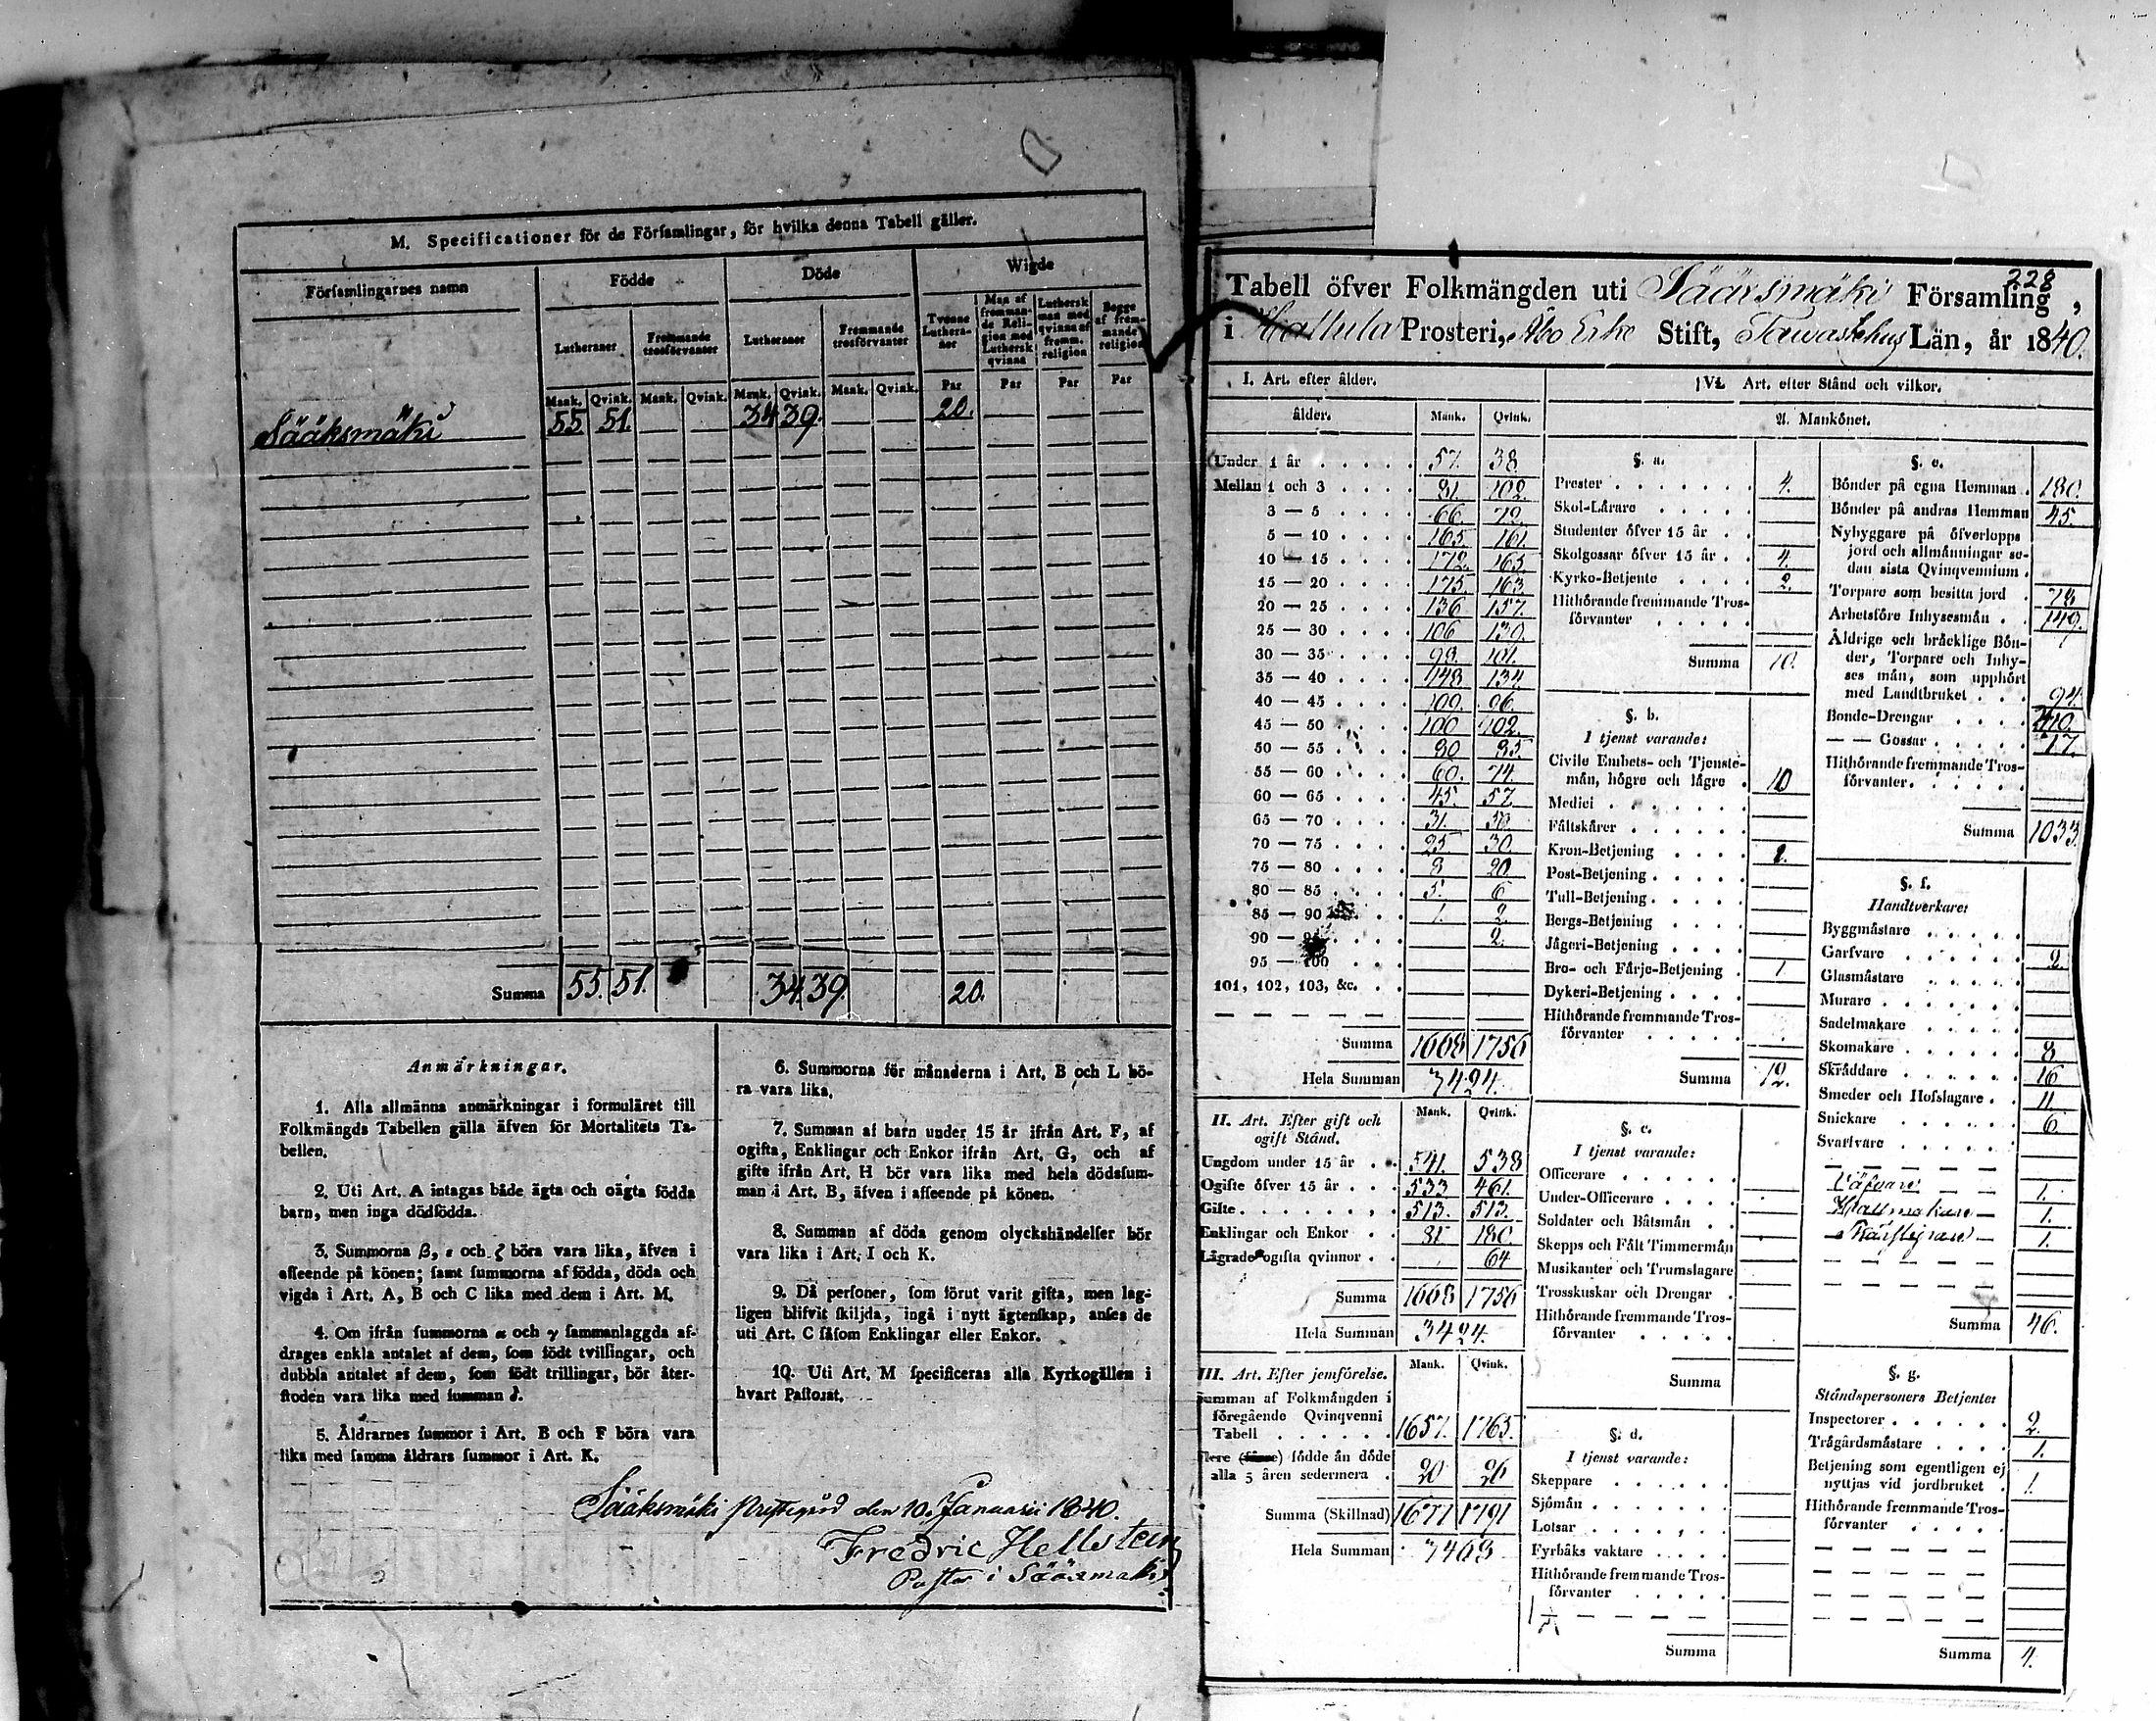 M. Specificationer för de Församlingar, för hvilka denna Tabell gäller.
Församlingarnes namn
Födde
Döde
Wigde
Lutheraner
Fremmande trosförvanter
Lutheraner
Fremmande trosförvanter
Tvenne Lutheraner
Man af fremmande Religion med Luthersk qvinna
Luthersk man med qvinna af fremm. religion
Begge af fremmande religion
Mank. Qvink. Mank. Qvink. Mank. Qvink. Mank. Qvink. Par Par Par Par
Sääksmäki 55 51 — — 34 39 — — 20. — — —
Summa 55. 51. 34 39. 20.
Anmärkningar.
1. Alla allmänna anmärkningar i formuläret till
Folkmängds Tabellen gälla äfven för Mortalitets Ta-
bellen.
2. Uti Art. A intagas både ägta och oägta födda
barn, men inga dödfödda.
3. Summorna β, ε och ζ böra vara lika, äfven i
afseende på könen; samt summorna af födda, döda och
vigda i Art. A, B och C lika med dem i Art. M.
4. Om ifrån summorna α och γ sammanlaggda af-
drages enkla antalet af dem, som födt tvillingar, och
dubbla antalet af dem, som födt trillingar, bör åter-
stoden vara lika med summan δ.
5. Åldrarnes summor i Art. B och F böra vara
lika med samma åldrars summor i Art. K.
6. Summorna för månaderna i Art. B och L bö-
ra vara lika.
7. Summan af barn under 15 år ifrån Art. F, af
ogifta, Enklingar och Enkor ifrån Art. G, och af
gifta ifrån Art. H bör vara lika med hela dödssum-
man i Art. B, äfven i afseende på könen.
8. Summan af döda genom olyckshändelser bör
vara lika i Art. I och K.
9. Då personer, som förut varit gifta, men lag-
ligen blifvit skiljda, ingå i nytt ägtenskap, anses de
uti Art. C såsom Enklingar eller Enkor.
10. Uti Art. M specificeras alla Kyrkogällen i
hvart Pastorat.
Sääksmäki Prestegård den 10. Januarii 1840.
Fredric Hellsteen
Pastor i Sääxmäki
228
Tabell öfver Folkmängden uti Säärsmäki Församling,
i Hattula Prosteri, Åbo Erke Stift, Tawastehus Län, år 1840.
I. Art. efter ålder.
ålder. Mank. Qvink.
Under 1 år 57. 38
Mellan 1 och 3 81. 102.
3 — 5 66. 72.
5 — 10 165. 161.
10 — 15 172. 165.
15 — 20 175. 163.
20 — 25 136 157.
25 — 30 106 130.
30 — 35 98. 101.
35 — 40 148 134
40 — 45 109. 96.
45 — 50 100 102.
50 — 55 80 85
55 — 60 60. 74
60 — 65 45. 57
65 — 70 31. 38
70 — 75 25 30
75 — 80 8 20.
80 — 85 5. 6
85 — 90 1. 2
90 — 95 2.
95 — 100
101, 102, 103, &c.
Summa 1668 1756
Hela Summan 3424.
II. Art. Efter gift och
ogift Stånd.
Mank. Qvink.
Ungdom under 15 år 541. 538
Ogifte öfver 15 år 533 461.
Gifte 513. 513.
Enklingar och Enkor 81 180.
Lägrade ogifta qvinnor 64
Summa 1668 1756
Hela Summan 3424.
III. Art. Efter jemförelse. Mank. Qvink.
Summan af Folkmängden i
föregående Qvinqvenni
Tabell 1657. 1765.
flere födde än döde
alla 5 åren sedermera 20 26
Summa (Skillnad) 1677 1791
Hela Summan 3468
VI. Art. efter Stånd och vilkor.
A. Mankönet.
§. a.
Prester 4.
Skol-Lärare
Studenter öfver 15 år
Skolgossar öfver 15 år 4.
Kyrko-Betjente 2.
Hithörande fremmande Tros-
förvanter
Summa 10.
§. b.
I tjenst varande:
Civile Embets- och Tjenste-
män, högre och lägre 10
Medici
Fältskärer
Kron-Betjening 1.
Post-Betjening
Tull-Betjening
Bergs-Betjening
Jägeri-Betjening
Bro- och Färje-Betjening 1
Dykeri-Betjening
Hithörande fremmande Tros-
förvanter
Summa 12.
§. c.
I tjenst varande:
Officerare
Under-Officerare
Soldater och Båtsmän
Skepps och Fält Timmermän
Musikanter och Trumslagare
Trosskuskar och Drengar
Hithörande fremmande Tros-
förvanter
Summa
§. d.
I tjenst varande:
Skeppare
Sjömän
Lotsar
Fyrbåks vaktare
Hithörande fremmande Tros-
förvanter
Summa
§. e.
Bönder på egna Hemman 180.
Bönder på andras Hemman 45.
Nybyggare på öfverlopps
jord och allmänningar se-
dan sista Qvinqvennium
Torpare som besitta jord 78
Arbetsföre Inhysesmän 149.
Äldrige och bräcklige Bön-
der, Torpare och Inhy-
ses män, som upphört
med Landtbruket 94.
Bonde-Drengar
— — Gossar 17.
Hithörande fremmande Tros-
förvanter
Summa 1033
§. f.
Handtverkare:
Byggmästare
Garfvare 2.
Glasmästare
Murare
Sadelmakare
Skomakare 8
Skräddare 16
Smeder och Hofslagare 11.
Snickare 6.
Svarfvare
Väfvare 1.
Hattmakare 1.
1.
Summa 46.
§. g.
Ståndspersoners Betjente:
Inspectorer 2.
Trägårdsmästare 1.
Betjening som egentligen ej
nyttjas vid jordbruket 1.
Hithörande fremmande Tros-
förvanter
Summa 4.